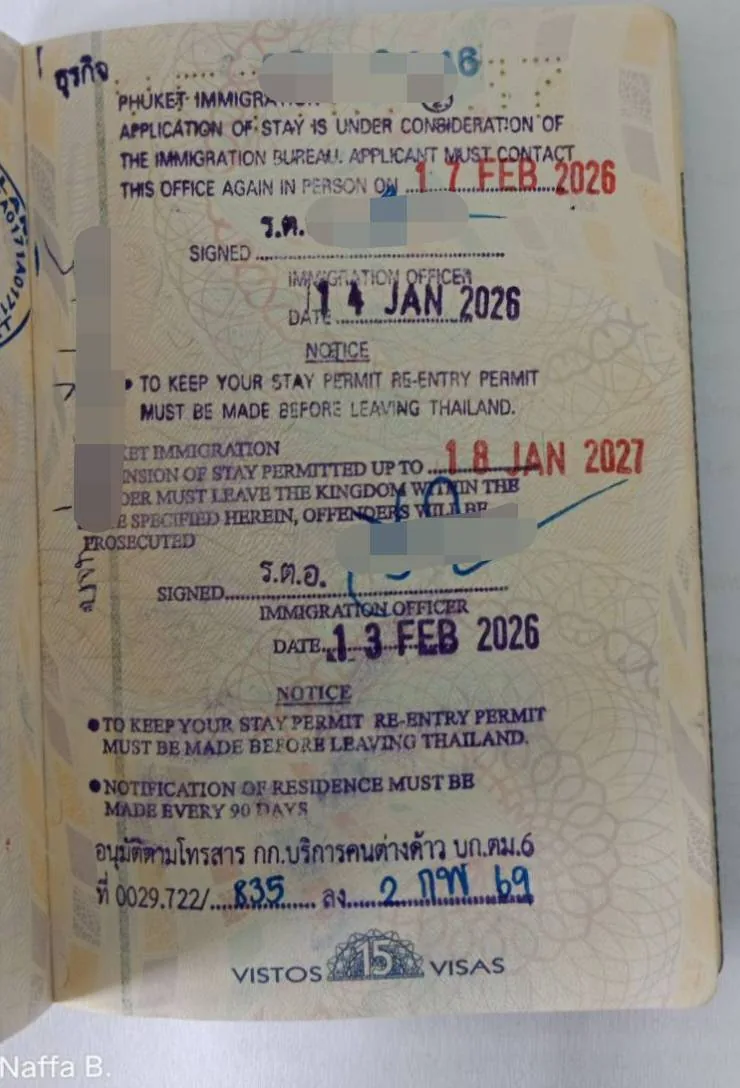 ธุรกิจ
6
PHUKET IMMIGRATION
APPLICATION OF STAY IS UNDER CONSIDERATION OF
THE IMMIGRATION BUREAU. APPLICANT MUST CONTACT
THIS OFFICE AGAIN IN PERSON ON 17 FEB 2026
ร.ต.
SIGNED
IMMIGRATION OFFICER
DATE 14 JAN 2026
NOTICE
• TO KEEP YOUR STAY PERMIT RE-ENTRY PERMIT
MUST BE MADE BEFORE LEAVING THAILAND.
KET IMMIGRATION
NSION OF STAY PERMITTED UP TO 18 JAN 2027
DER MUST LEAVE THE KINGDOM WITHIN THE
E SPECIFIED HEREIN, OFFENDERS WILL BE
PROSECUTED
ร.ต.อ.
SIGNED
IMMIGRATION OFFICER
DATE 13 FEB 2026
NOTICE
• TO KEEP YOUR STAY PERMIT RE-ENTRY PERMIT
MUST BE MADE BEFORE LEAVING THAILAND.
• NOTIFICATION OF RESIDENCE MUST BE
MADE EVERY 90 DAYS
อนุมัติตามโทรสาร กก.บริการคนต่างด้าว บก.ตม.6
ที่ 0029.722/ 835 ลง 2 กพ 69
VISTOS 15 VISAS
Naffa B.